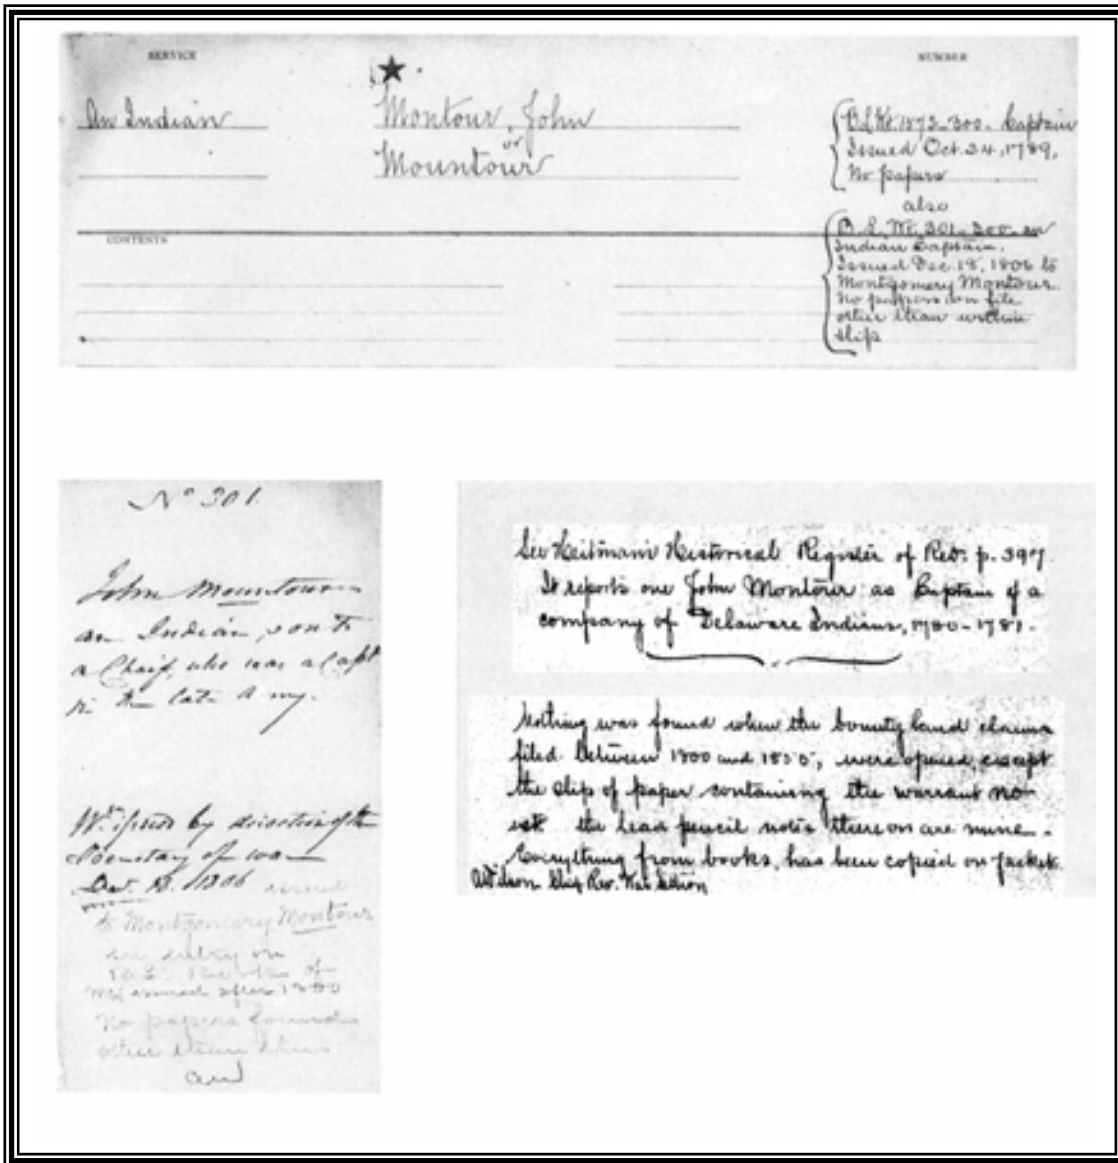 SERVICE
NUMBER
An Indian
Montour, John
or
Mountour
B.L.Wt. 1573-300. Captain
Issued Oct. 24, 1789,
No papers
also
B.L.Wt. 301-300-an
Indian Captain.
Issued Dec. 18, 1806 to
Montgomery Montour.
No papers on file
other than within
slip
CONTENTS
No 301
John Mountour
an Indian, son to
a Chaif, who was a Capt
in the late Army.
Wt. issued by direction of the
Secretary of war
Dec. 18. 1806 issued
to Montgomery Montour
see entry on
B.L. Records of
Wts issued after 1800
No papers found
other than this
See Heitman's Historical Register of Rev: p. 397.
It reports one John Montour as Captain of a
company of Delaware Indians, 1780-1781.
Nothing was found when the bounty land claims
filed between 1800 and 1855, were opened, except
the slip of paper containing the warrant no
the lead pencil notes thereon are mine.
Everything from books, has been copied on jacket
Rev.